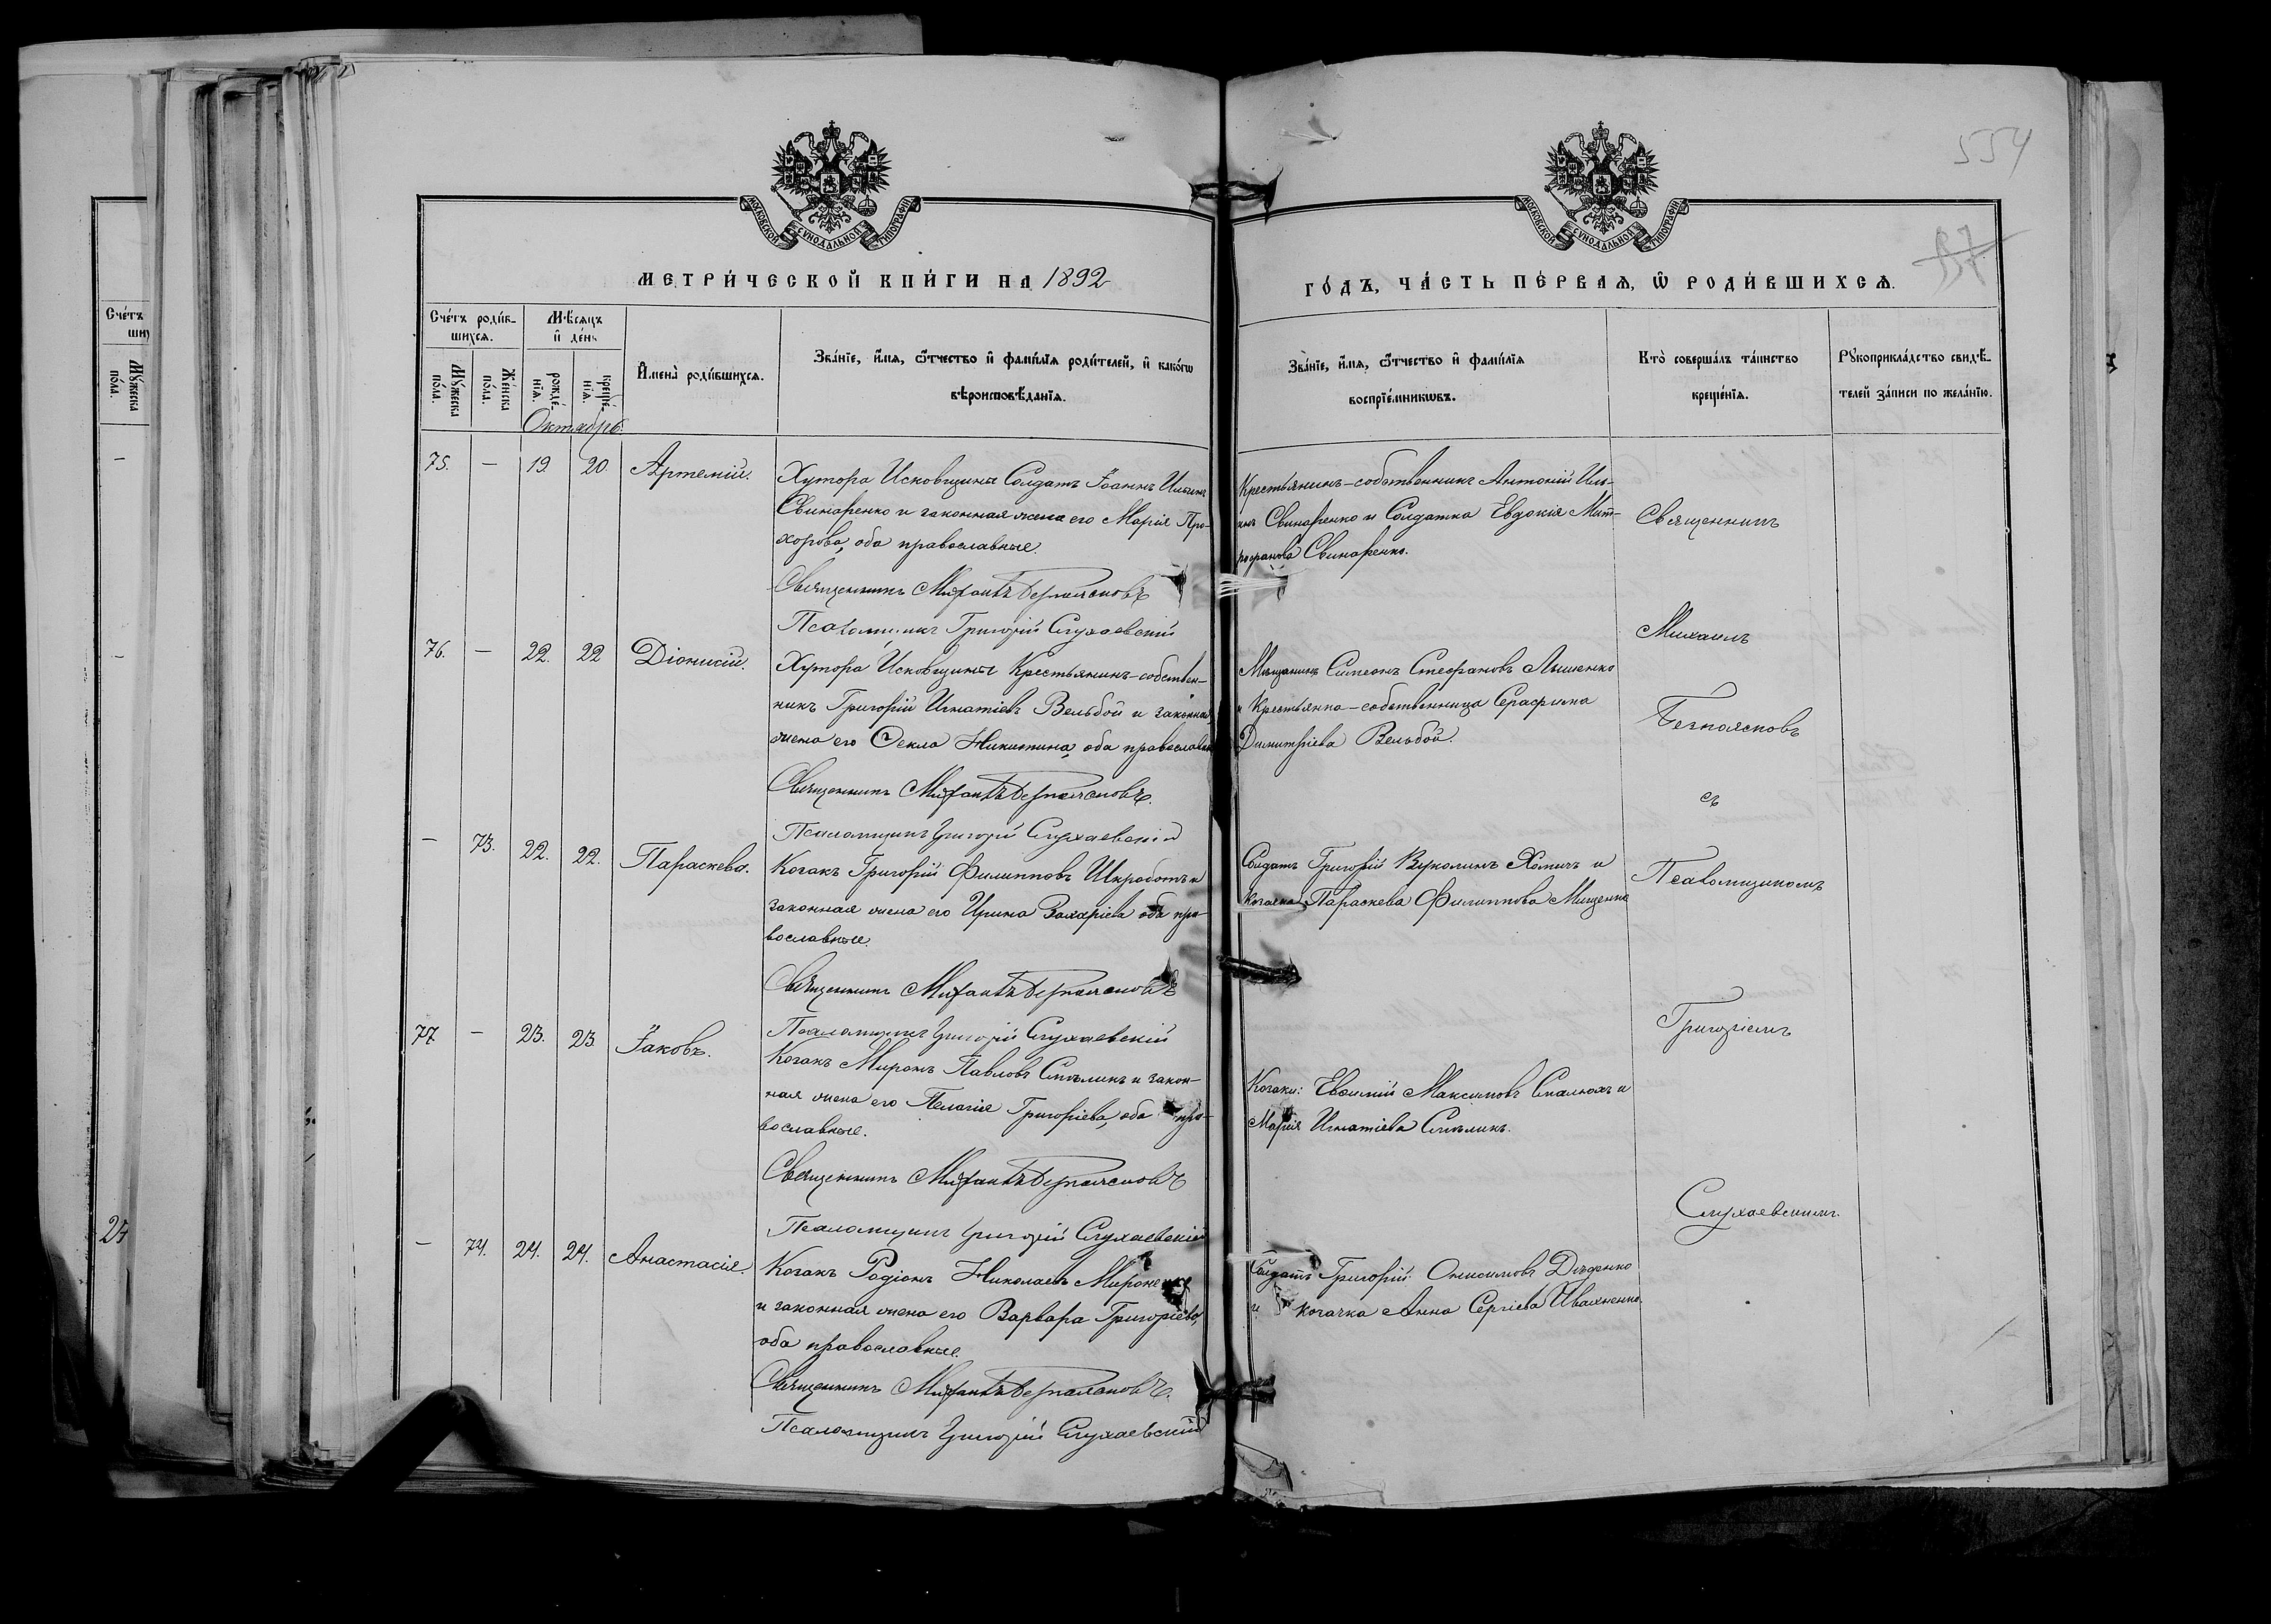 554
57
МОСКОВСКОЙ СѴНОДАЛЬНОЙ ТИПОГРАФІИ
МОСКОВСКОЙ СѴНОДАЛЬНОЙ ТИПОГРАФІИ
МЕТРИ́ЧЕСКОЙ КНИ́ГИ НА 1892
ГО́ДЪ, ЧА́СТЬ ПЕ́РВАЯ, Ѿ РОДИ́ВШИХСЯ.
Сче́тъ роди́в-
шихся.
Мѣ́сяцъ
и де́нь
Мꙋ́жеска по́ла.
Же́нска по́ла.
рожде́-
нія.
креще́-
нія.
Имена̀ роди́вшихся.
Зва́ніе, и́мя, ѻ҆́тчество и фами́лія роди́телей, и како́гѡ
вѣроисповѣ́данія.
Зва́ніе, и́мя, ѻ҆́тчество и фами́лія
воспріе́мникѡвъ.
Кто̀ соверша́лъ та́инство
креще́нія.
Рꙋкоприкла́дство свидѣ́-
телей за́писи по жела́нію.
Октябрь.
75. — 19. 20. Артемій.
Хутора Исковщины Солдатъ Іоаннъ Ильинъ
Свинаренко и законная жена его Марія Про-
хорова, оба православные.
Священникъ Михаилъ Безпоясковъ
Псаломщикъ Григорій Слухаевскій
Крестьянинъ-собственникъ Антоній Иль-
инъ Свинаренко и Солдатка Евдокія Мит-
рофанова Свинаренко.
Священникъ
Михаилъ
Безпоясковъ
съ
Псаломщикомъ
Григоріемъ
Слухаевскимъ.
76. — 22. 22 Діонисій.
Хутора Исковщины Крестьянинъ-собствен-
никъ Григорій Игнатіевъ Вельбой и законная
жена его Ѳекла Никитина, оба православные
Священникъ Михаилъ Безпоясковъ.
Псаломщикъ Григорій Слухаевскій
Мѣщанинъ Симеонъ Стефановъ Ляшенко
и Крестьянка-собственница Серафима
Димитріева Вельбой.
— 73. 22. 22. Параскева.
Козакъ Григорій Филипповъ Шкроботъ и
законная жена его Ирина Захаріева оба пра-
вославные.
Священникъ Михаилъ Безпоясковъ
Псаломщикъ Григорій Слухаевскій
Солдатъ Григорій Вуколинъ Хомичъ и
козачка Параскева Филиппова Мищенко
77 — 23. 23. Іаковъ.
Козакъ Миронъ Павловъ Смѣликъ и закон-
ная жена его Пелагія Григоріева, оба пра-
вославные.
Священникъ Михаилъ Безпоясковъ
Псаломщикъ Григорій Слухаевскій
Козаки: Евѳимій Максимовъ Смалюхъ и
Марія Игнатіева Смѣликъ.
— 74. 24. 24. Анастасія.
Козакъ Родіонъ Николаевъ Мироненко
и законная жена его Варвара Григоріева,
оба православные.
Священникъ Михаилъ Безпоясковъ.
Псаломщикъ Григорій Слухаевскій
Солдатъ Григорій Онисимовъ Дъяченко
и козачка Анна Сергіева Ивахненко.
Сче́тъ
ших
Мꙋ́жеска
по́ла.